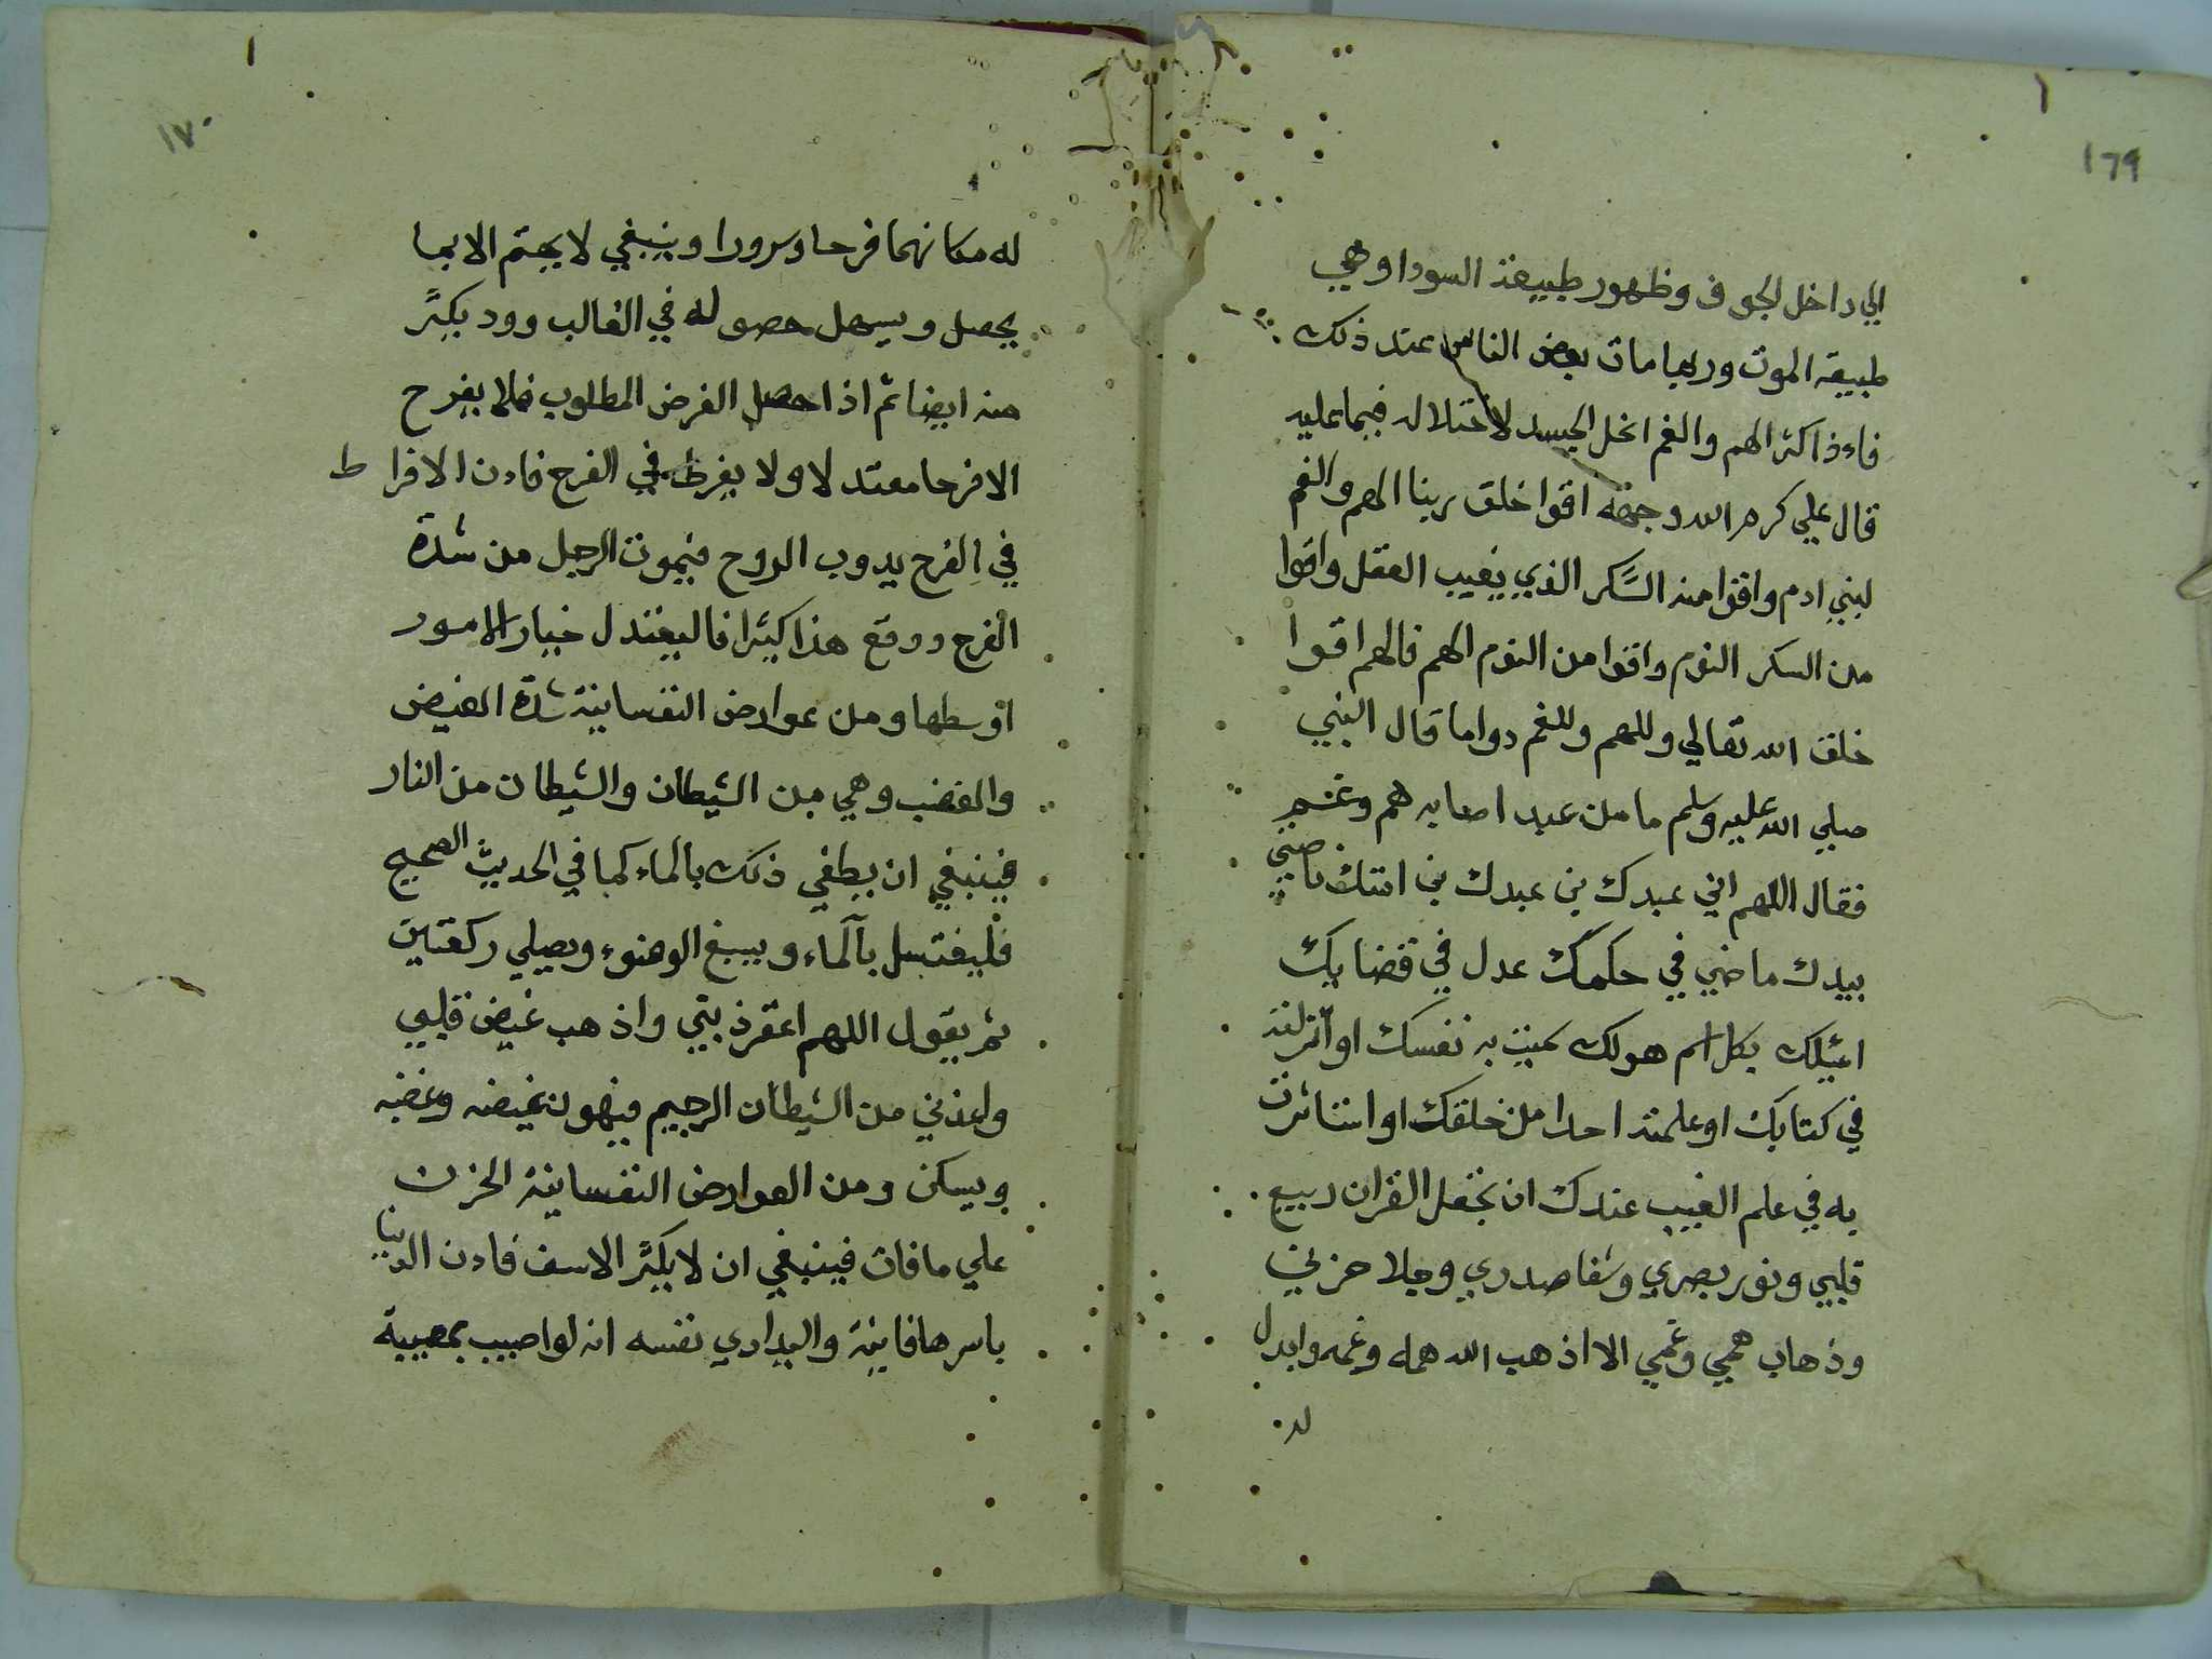 ١٦٩
الي داخل الجوف وظهور طبيعة السودا وهي
طبيعة الموت وربما مات بعض الناس عند ذلك
فاءذا كثر الهم والغم انحل الجسد لاختلاله فيما عليه
قال علي كرم الله وجهه اقوا خلق ربنا الهم والغم
لبني ادم واقوا منه السكر الذي يغيب العقل واقوا
من السكر النوم واقوا من النوم الهم فالهم اقوا
خلق الله تعالي وللهم وللغم دواما قال النبي
صلي الله عليه وسلم ما من عبد اصابه هم وغم
فقال اللهم اني عبدك بن عبدك بن امتك ناصيتي
بيدك ماضي في حكمك عدل في قضايك
اسئلك بكل اسم هولك سميت به نفسك او انزلته
في كتابك او علمته احدا من خلقك او استاثرت
به في علم الغيب عندك ان تجعل القران ربيع
قلبي ونور بصري وشفا صدري وجلا حزني
وذهاب همي وغمي الا اذهب الله همه وغمه وابدل
له
١٧٠
له مكانهما فرحا وسرورا وينبغي لا يهتم الا بما
يحصل ويسهل حصوله في الغالب وود بكثر
منه ايضا ثم اذا حصل الغرض المطلوب فلا يفرح
الا فرحا معتدلا ولا يفرط في الفرح فاءن الافراط
في الفرح يدوب الروح فيموت الرجل من شدة
الفرح ووقع هذا كثيرا فاليعتدل خيار الامور
اوسطها ومن عوارض النفسانية شدة الغيض
والغضب وهي من الشيطان والشيطان من النار
فينبغي ان يطفي ذلك بالماء كما في الحديث الصحيح
فليغتسل بالماء ويسبغ الوضوء ويصلي ركعتين
ثم يقول اللهم اغفر ذبتي واذهب غيض قلبي
واعذني من الشيطان الرجيم فيهون غيضه وغضبه
ويسكن ومن العوارض النفسانية الحزن
علي مافات فينبغي ان لا يكثر الاسف فاءن الدنيا
باسرها فانية واليداوي نفسه انه لو اصيب بمصيبة